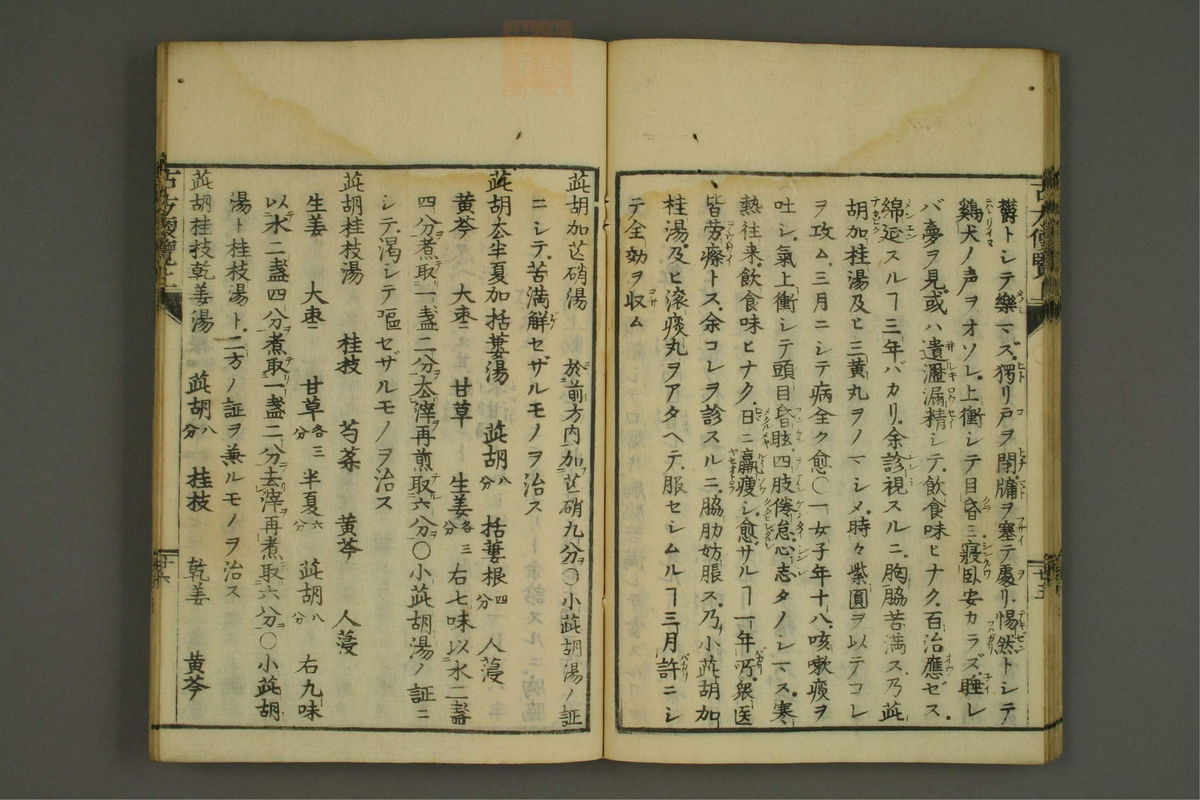 欝トシテ樂マズ獨リ戸ヲ閉牖ヲ塞テ處リ惕然トシテ
鷄犬ノ声ヲオソレ上衝シテ目昏ミ寢臥安カラズ睡レ
バ夢ヲ見或ハ遺瀝漏精シテ飲食味ヒナク百治應ゼス
綿延スルヿ三年バカリ余診視スルニ胸脇苦満ス乃茈
胡加桂湯及ヒ三黄丸ヲノマシメ時々紫圓ヲ以テコレ
ヲ攻ム三月ニシテ病全ク愈〇一女子年十八咳嗽痰ヲ
吐シ氣上衝シテ頭目昏眩四肢倦怠心志タノシマス寒
熱往来飲食味ヒナク日ニ羸痩シ愈サルヿ一年所衆医
皆労瘵トス余コレヲ診スルニ脇肋妨脹ス乃小茈胡加
桂湯及ヒ滚痰丸ヲアタヘテ服セシムルヿ三月許ニシ
テ全効ヲ収ム
茈胡加芒硝湯 於前方内加芒硝九分〇小茈胡湯ノ証
ニシテ苦満解セザルモノヲ治ス
茈胡去半夏加括蔞湯 茈胡八分 括蔞根四分 人薓
黄芩 大棗二 甘草 生姜各三分 右七味以水二盞
四分煮取一盞二分去滓再煎取六分〇小茈胡湯ノ証ニ
シテ渇シテ嘔セザルモノヲ治ス
茈胡桂枝湯 桂枝 芍薬 黄芩 人薓
生姜 大棗二 甘草各三分 半夏六分 茈胡八分 右九味
以水二盞四分煮取一盞二分去滓再煮取六分〇小茈胡
湯ト桂枝湯ト二方ノ証ヲ兼ルモノヲ治ス
茈胡桂枝乾姜湯 茈胡八分 桂枝 乾姜 黄芩
古方便覧上
十六
十五